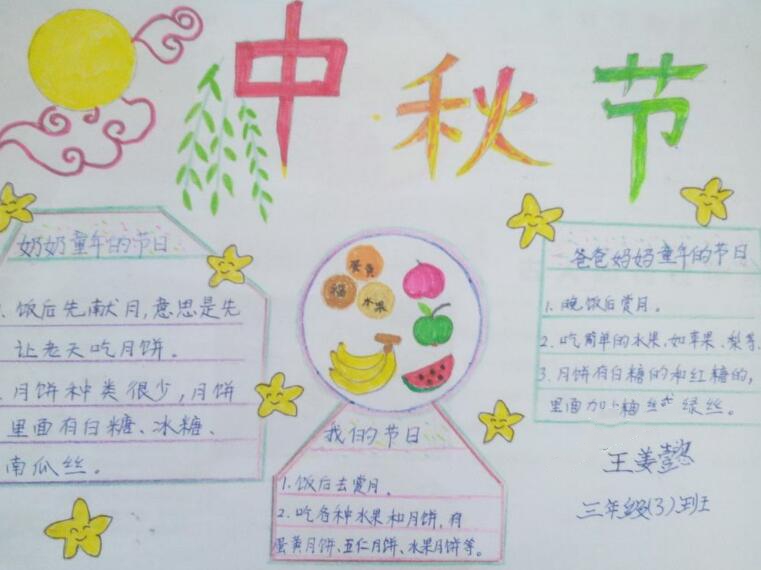 中秋节
奶奶童年的节日
1. 饭后先献月,意思是先
让老天吃月饼。
2. 月饼种类很少,月饼
里面有白糖、冰糖、
南瓜丝。
蛋黄
福
水果
我们的节日
1. 饭后去赏月。
2. 吃各种水果和月饼,有
蛋黄月饼、五仁月饼、水果月饼等。
爸爸妈妈童年的节日
1. 晚饭后赏月。
2. 吃简单的水果,如苹果、梨等
3. 月饼有白糖的和红糖的,
里面加上 丝或绿丝。
王姜懿
三年级(3)班